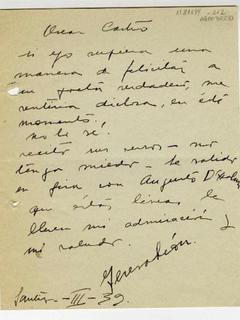 Oscar Castro
si yo supiera una
manera de felicitar a
un poeta verdadero, me
sentiría dichosa, en este
momento.,
no lo sé.
recité sus versos – no
tenga miedo –
en gira con Augusto D'Halmar
que estas líneas le
lleven sus admiración y
mi saludo.
Santiago – III – 39.